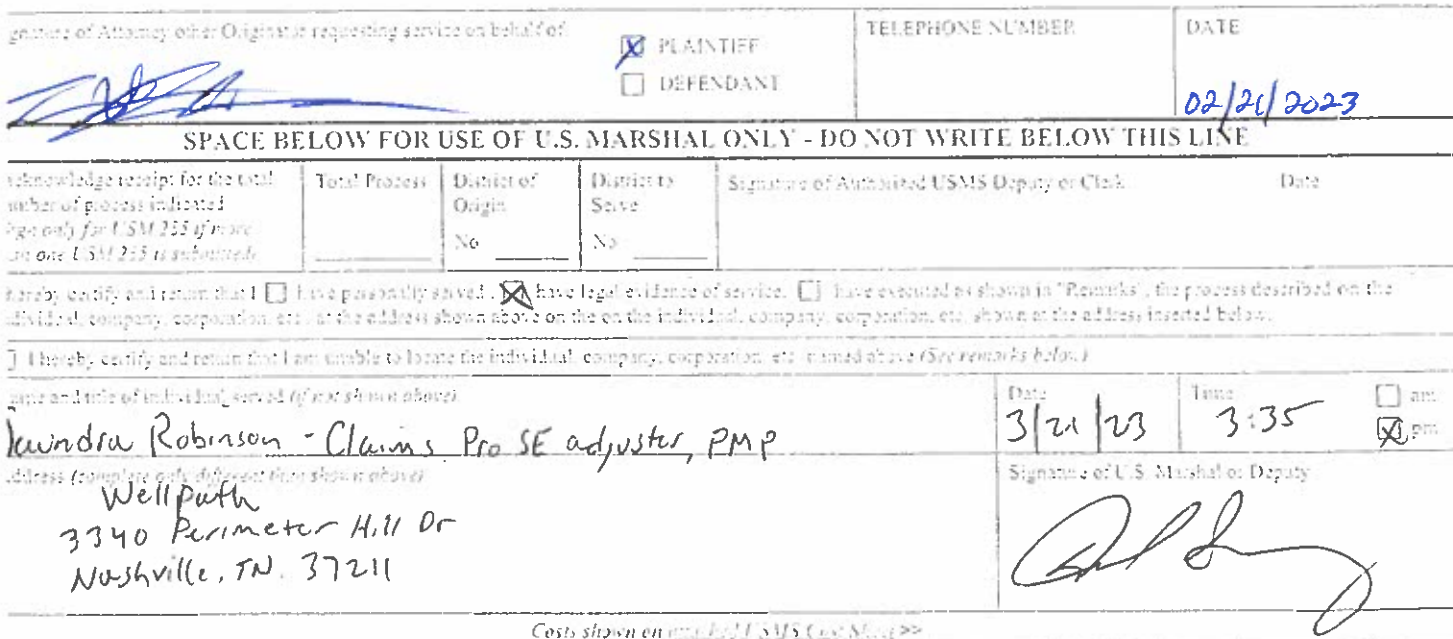 gnature of Attorney other Originator requesting service on behalf of:
PLAINTIFF
DEFENDANT
TELEPHONE NUMBER
DATE
02/21/2023
SPACE BELOW FOR USE OF U.S. MARSHAL ONLY - DO NOT WRITE BELOW THIS LINE
acknowledge receipt for the total
umber of process indicated
ign only for USM 285 if more
an one USM 285 is submitted)
Total Process
District of
Origin
No
District to
Serve
No
Signature of Authorized USMS Deputy or Clerk
Date
hereby certify and return that I have personally served, have legal evidence of service, have executed as shown in "Remarks", the process described on the
dividual, company, corporation, etc., at the address shown above on the on the individual, company, corporation, etc. shown at the address inserted below.
I hereby certify and return that I am unable to locate the individual, company, corporation, etc. named above (See remarks below)
ame and title of individual served (if not shown above)
Robinson - Claims Pro SE adjuster, PMP
Date
3/21/23
Time
3:35
am
pm
ddress (complete only different than shown above)
Wellpath
3340 Perimeter Hill Dr
Nashville, TN. 37211
Signature of U.S. Marshal or Deputy
Costs shown on attached USMS Cost Sheet >>